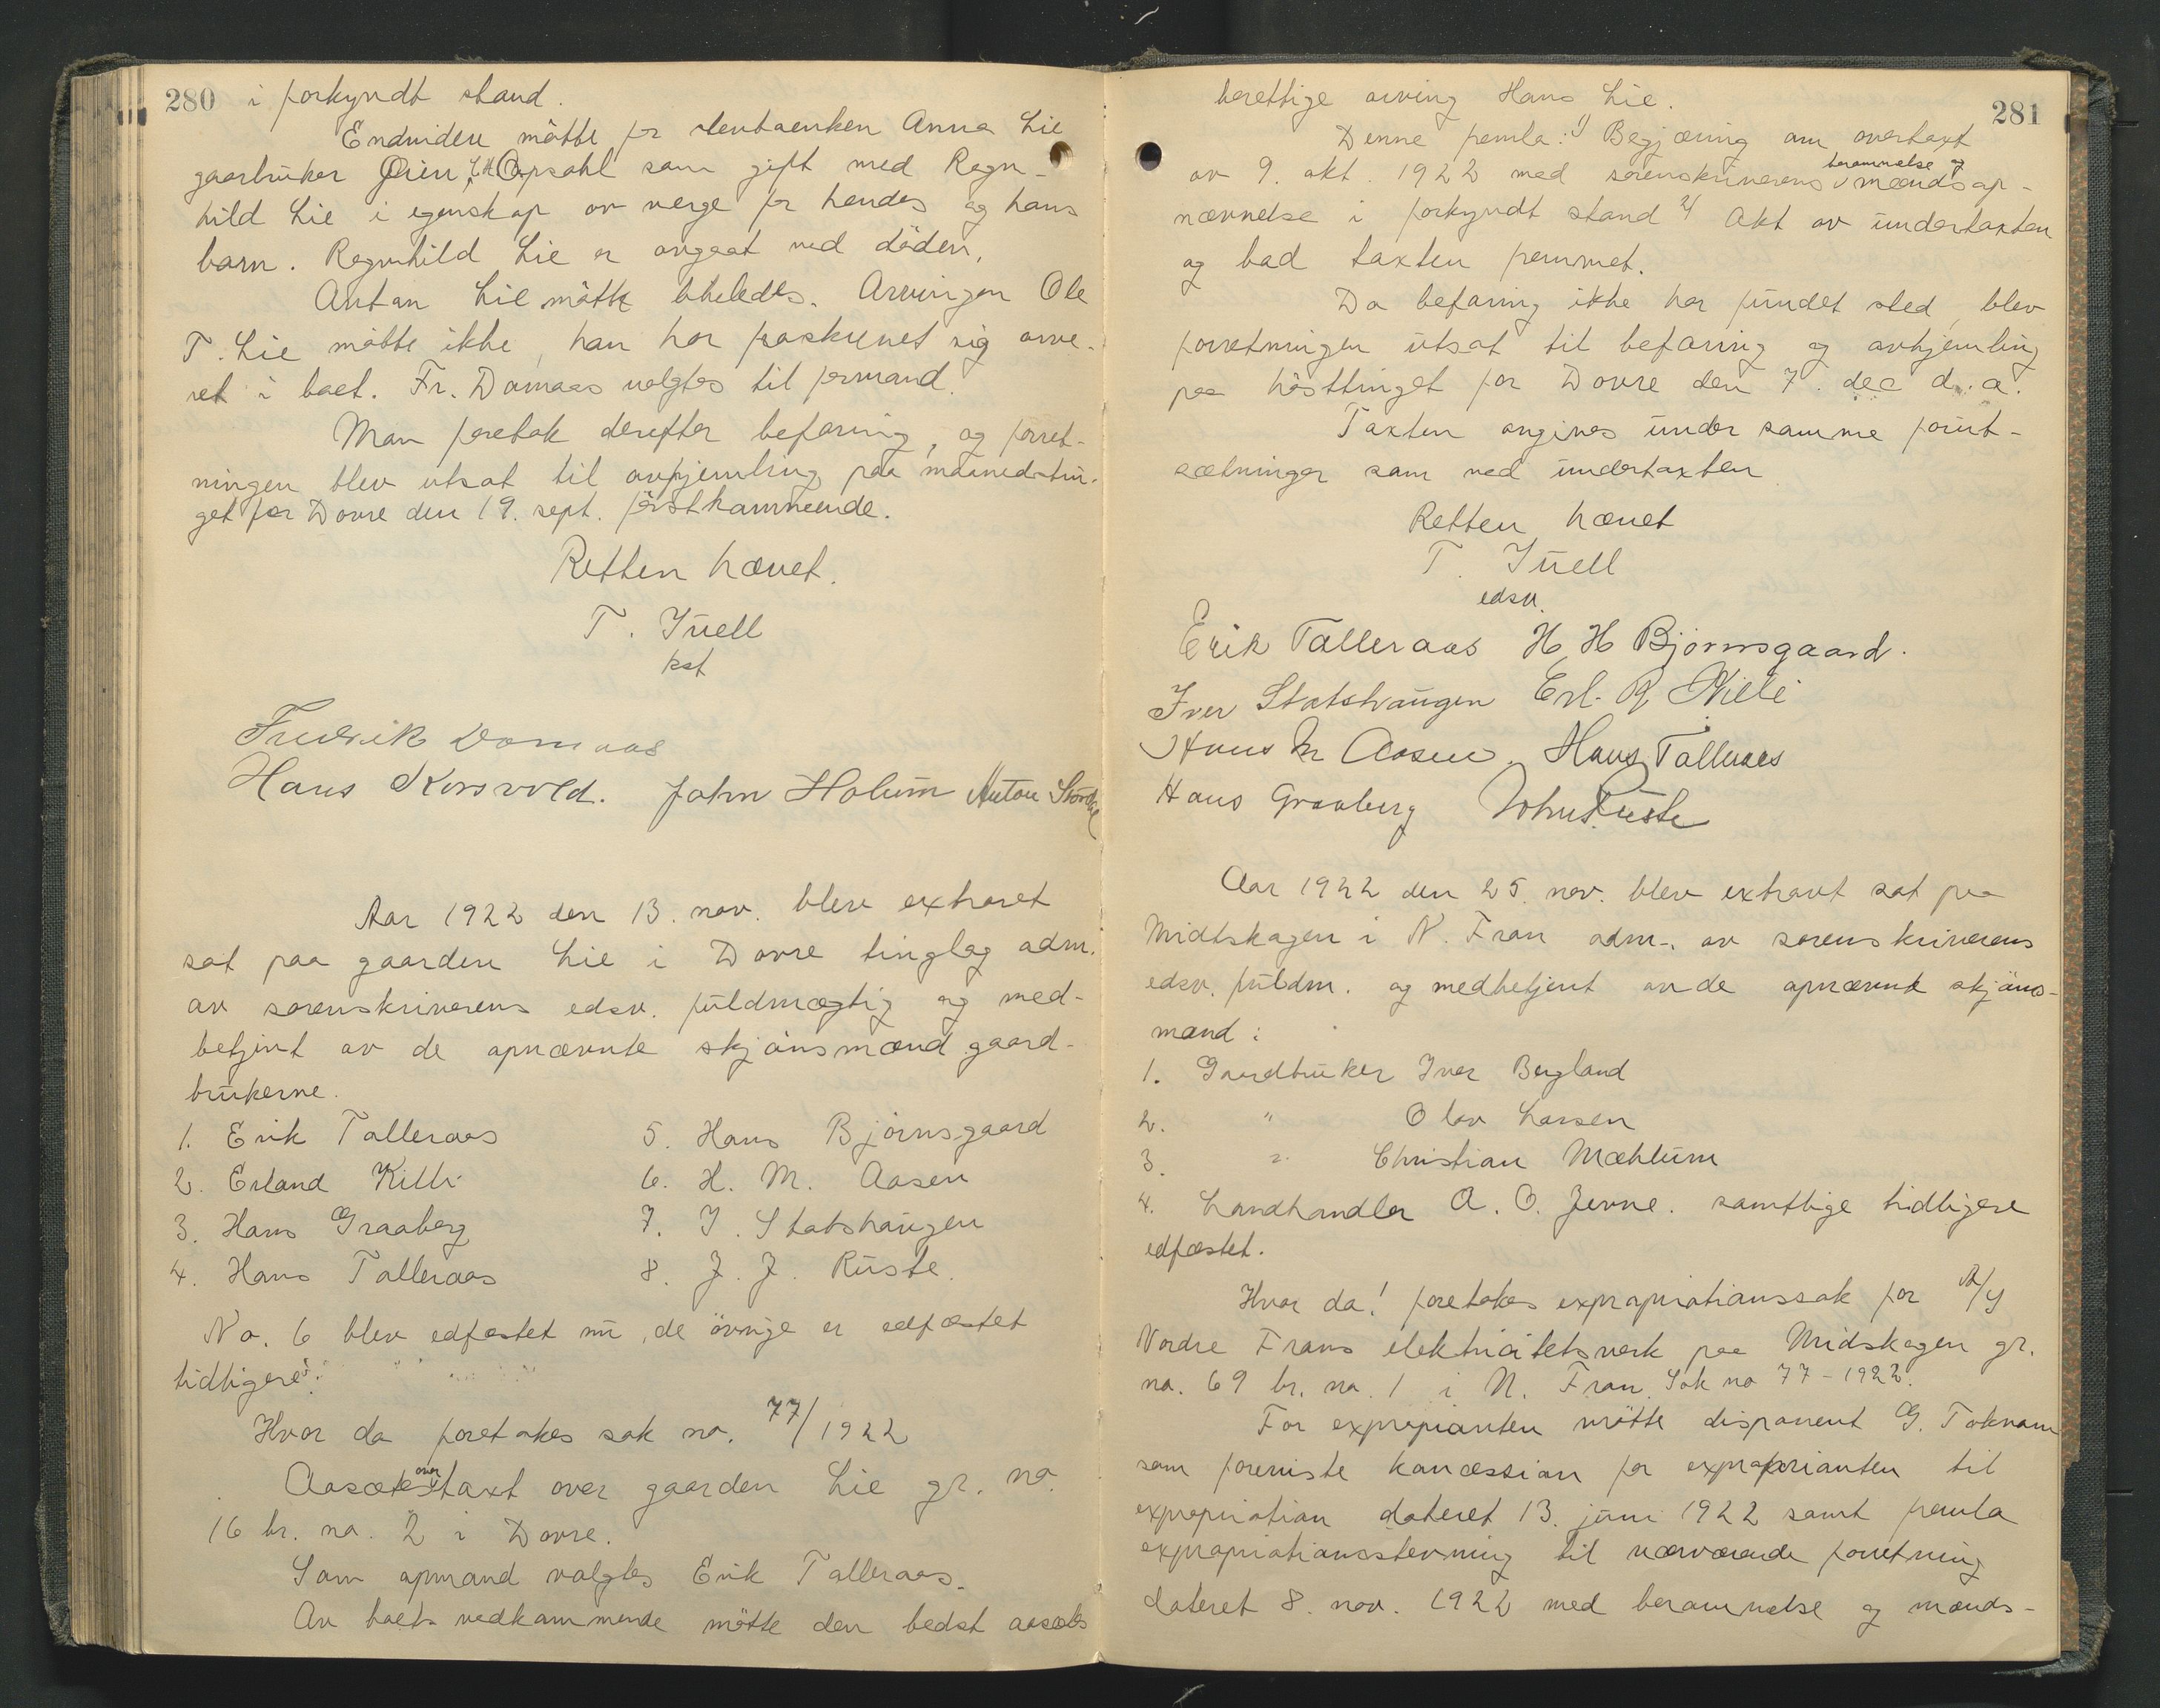 280 i forkyndt stand.
Endvidere møtte for levtaenken Anna Lie
gaarbruker Opsahl som gift med Ragn-
hild Lie i egenskap av verge for hendes og hans
barn. Ragnhild Lie er avgaat ved döden.
Anton Lie møtte likeledes. Arvingen Ole
T. Lie møtte ikke, han har fraskrevet sig arve-
ret i boet. Fr. Domaas valgtes til formand.
Man foretok derefter befaring, og forret-
ningen blev utsat til avhjemling paa maanedstin-
get for Dovre den 19. sept. førstkommende.
Retten hævet.
T. Juell
kst
Fredrik Domaas
Hans Korsvold. John Holum Anton
Aar 1922 den 13. nov. blev extraret
sat paa gaarden Lie i Dovre tinglag adm.
av sorenskriverens edsv. fuldmægtig og med-
betjent av de opnævnte skjönsmænd gaard-
brukerne.
1. Erik Talleraas 5. Hans Bjørnsgaard
2. Erland Killi 6. H. M. Aasen
3. Hans Graaberg 7. I. Statshaugen
4. Hans Talleraas 8. J. J. Ruste.
No. 6 blev edfæstet nu, de övrige er edfæstet
tidligere.
Hvor da foretokes sak no. 77/1922
Aasætesovertaxt over gaarden Lie gr. no.
16 br. no. 2 i Dovre.
Som opmand valgtes Erik Talleraas.
Av boets vedkommende møtte den bedst aasætes
281
berettige arving Hans Lie.
Denne fremla: 1) Begjæring om overtaxt
av 9. okt. 1922 med sorenskriverens berammelse og mændsop-
nævnelse i forkyndt stand 2) Akt av undertaxten
og bad taxten fremmet.
Da befaring ikke har fundet sted, blev
forretningen utsat til befaring og avhjemling
paa høsttinget for Dovre den 7. dec d.a.
Taxten avgives under samme forut-
sætninger som ved undertaxten
Retten hævet
T. Juell
edsv.
Erik Talleraas H H Bjørnsgaard.
Iver Statshaugen Erl. Killi
Hans M Aasen. Hans Talleraas
Hans Graaberg John Ruste
Aar 1922 den 25. nov. blev extraret sat paa
Midtskagen i N. Fron adm. av sorenskriverens
edsv. fuldm. og medbetjent av de opnævnte skjøns-
mænd:
1. Gaardbruker Iver Bergland
2. " Olav Larsen
3. " Christian Mæhlum
4. Landhandler A. O. Jevne. samtlige tidligere
edfæstet.
Hvor da! foretokes expropriationssak for A/S
Nordre Frons elektricitetsverk paa Midskagen gr.
no. 69 br. no. 1 i N. Fron. Sak no 77-1922.
For exproprianten møtte disponent G. Toknam
som foreviste koncession for exproprianten til
expropriation dateret 13. juni 1922 samt fremla
expropriationsstevning til nærværende forretning
dateret 8. nov. 1922 med berammelse og mænds-